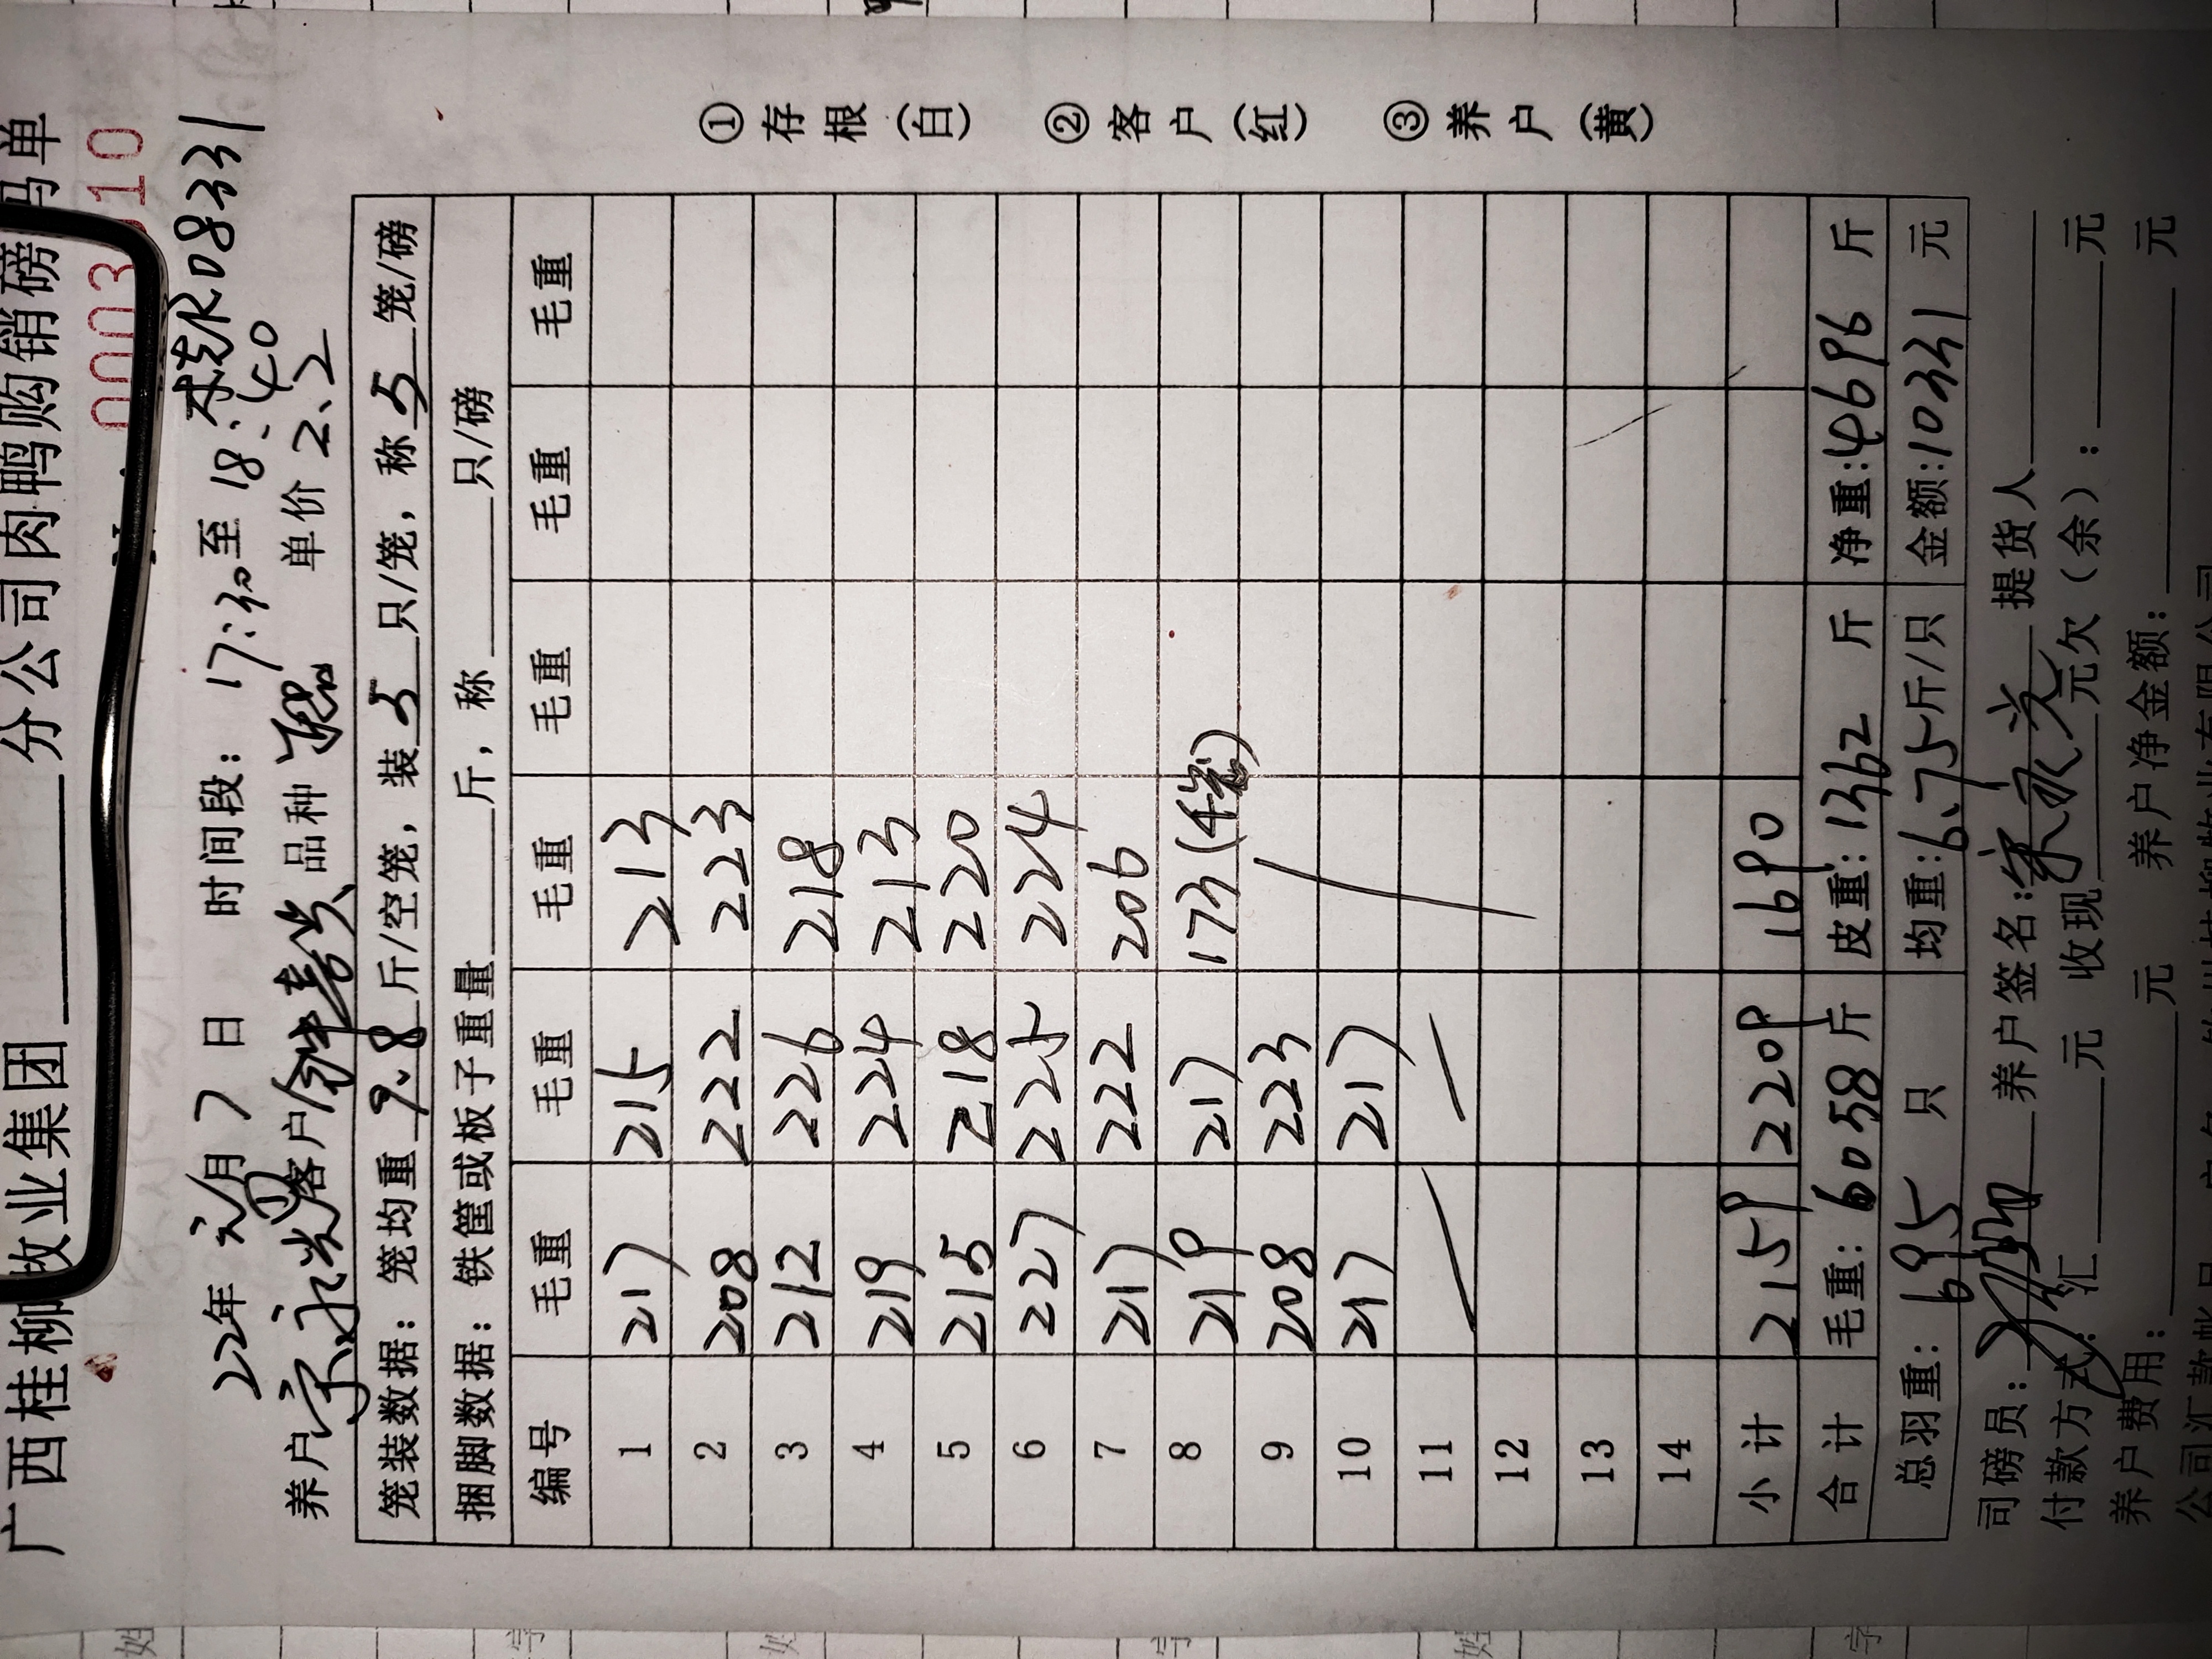 广西桂柳牧业集团 分公司肉鸭购销磅码单
0003 10
22年元月7日 时间段：17:30至18:40 R08331
养户 宋永光 客户 品种 单价 2.2
笼装数据：笼均重 9.8 斤/空笼，装 5 只/笼，称 5 笼/磅
捆脚数据：铁筐或板子重量 斤，称 只/磅
编号 毛重 毛重 毛重 毛重 毛重 毛重
1 217 215 213
2 208 222 223
3 212 226 218
4 219 224 213
5 215 218 220
6 227 225 224
7 217 222 206
8 219 217 173(4笼)
9 208 223
10 217 217
11
12
13
14
小计 2159 2209 1690
合计 毛重：6058 斤 皮重：1362 斤 净重：4696 斤
总羽重：695 只 均重：6.75 斤/只 金额：10331 元
司磅员： 养户签名：宋永光 提货人
付款方式：汇 元 收现 元欠（余）： 元
养户费用： 元 养户净金额： 元
公司汇款帐号
①存根（白） ②客户（红） ③养户（黄）